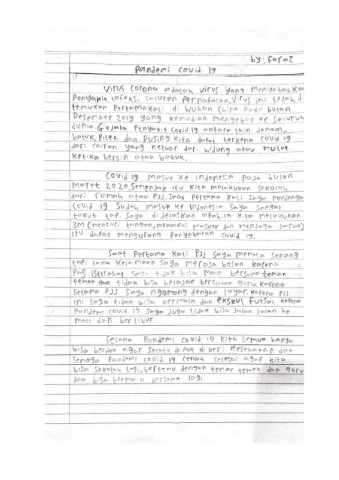 by: Faraz
Pandemi covid 19
Virus corona adalah virus yang menyebabkan
Penyakit infeksi saluran Pernafasan. Virus ini telah di
temukan Pertamakali di wuhan china Pada bulan
Desember 2019 yang kemudian menyebar ke seluruh
dunia. Gejala Penyakit Covid 19 antara lain demam,
batuk, Pilek dan Pusing kita dapat terkena covid 19
dari cairan yang keluar dari hidung atau mulut
ketika bersin atau batuk.
Covid 19 masuk ke indonesia Pada bulan
Maret 2020. Semenjak itu kita melakukan sekolah
dari rumah atau PJJ. Saat Pertama kali Saya mendengar
Covid 19 sudah masuk ke indonesia Saya sangat
takut tapi saya di jelaskan apabila kita melakukan
3M (mencuci tangan, memakai masker dan menjaga jarak)
itu dapat mengurangi Penyebaran covid 19.
Saat Pertama kali PJJ Saya merasa senang
tapi lama kelamaan Saya merasa bosan karena
Pas istirahat saya tidak bisa main bersama teman
teman dan tidak bisa belajar bersama guru. Karena
Selama PJJ Saya zigzoong dengan layar. Karena PJJ
ini saya tidak bisa bermain dan ekskul futsal. karena
Pandemi covid 19 saya juga tidak bisa jalan jalan ke
mall dan berlibur.
Selama Pandemi covid 19 kita semua hanya
bisa berdoa agar selalu dapat di beri kesehatan dan
Semoga Pandemi covid 19 cepat selesai agar kita
bisa sekolah lagi, bertemu dengan teman teman dan guru
dan bisa bermain bersama lagi.